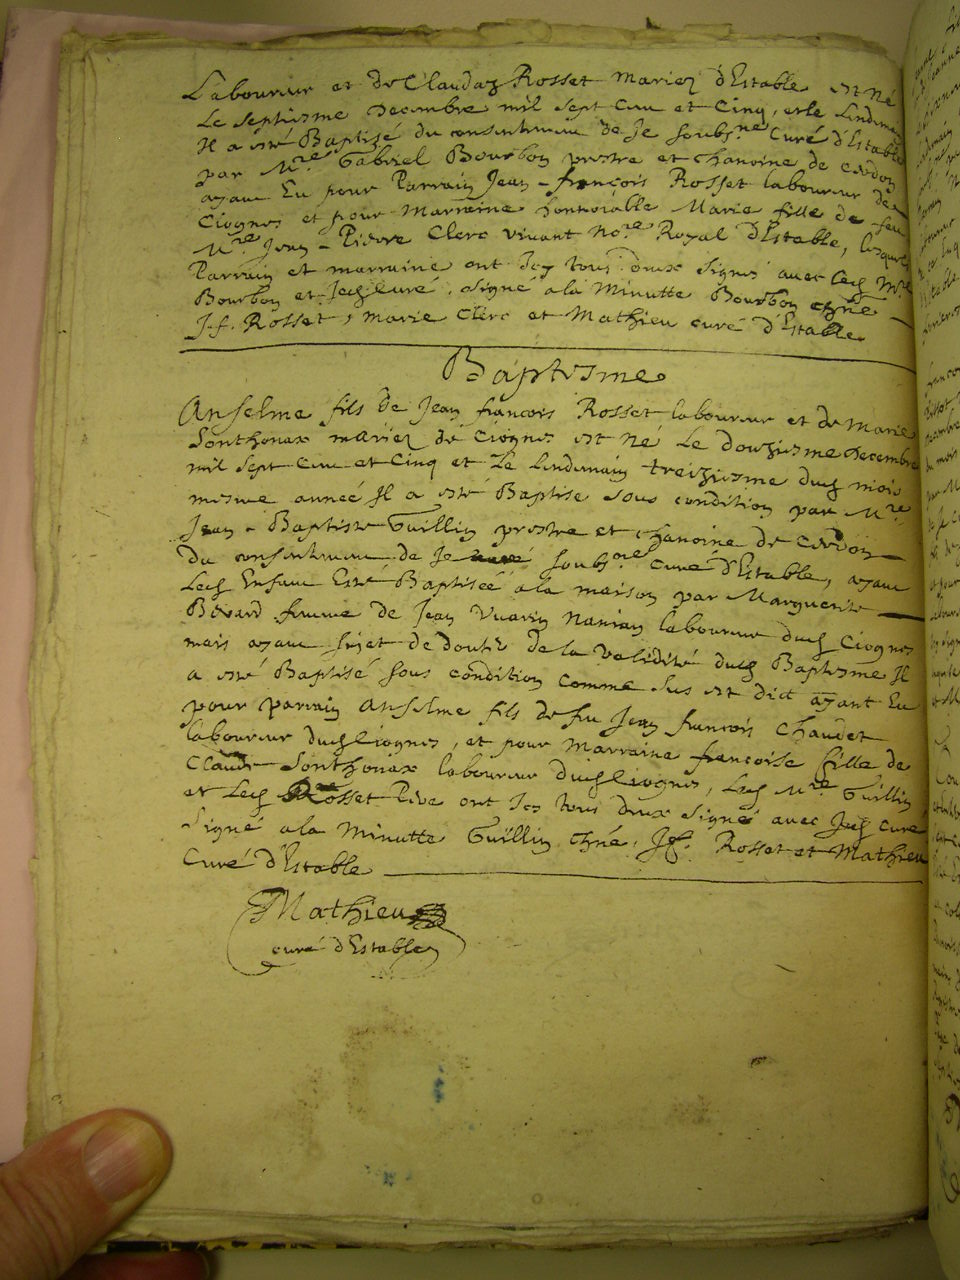 Laboureur et de Claudaz Rosset mariez d'Estable est né
Le septiesme decembre mil sept cens et cinq, et le lindemain
Il a esté Baptisé du consentement de Je soubs.ne Curé d'Estable
par M.re Gabriel Bourbon prestre et chanoine de cerdon
ayant Eu pour Parrain Jean-françois Rosset laboureur de
Ciognes et pour Marraine honnorable Marie fille de feu
M.re Jean-Pierre Clerc vivant No.re Royal d'Estable, lesquels
Parrain et marraine ont Icy tous deux signés avec led M.re
Bourbon et Jed Curé. signé a la Minutte Bourbon chne
J.f. Rosset, Marie Clerc et Mathieu curé d'Estable
Baptesme
Anselme fils de Jean françois Rosset laboureur et de Marie
Sonthonax mariez de Ciognes est né Le douziesme decembre
mil sept cens et cinq et Le lindemain treiziesme dud mois
mesme année Il a esté Baptisé sous condition par M.re
Jean-Baptiste Guillin prestre et chanoine de cerdon
Du consentement de Je soubs.ne curé d'Estable, ayant
Led Enfant Esté Baptiseé a la maison par Marguerite
femme de Jean Vuarin laboureur dud Ciognes
mais ayant sujet de doute de la validité dud Baptesme Il
a esté Baptisé sous condition comme sus est dict ayant Eu
pour parrain Anselme fils de feu Jean françois Chaudet
laboureur dud Ciognes, et pour Marraine françoise fille de
Claude Sonthonax laboureur dud Ciognes, Led M.re Guillin
et Led Rosset Pere ont Icy tous deux signé avec Jed curé
Signé a la Minutte Guillin chne, J.f. Rosset et Mathieu
Curé d'Estable
Mathieu
curé d'Estable